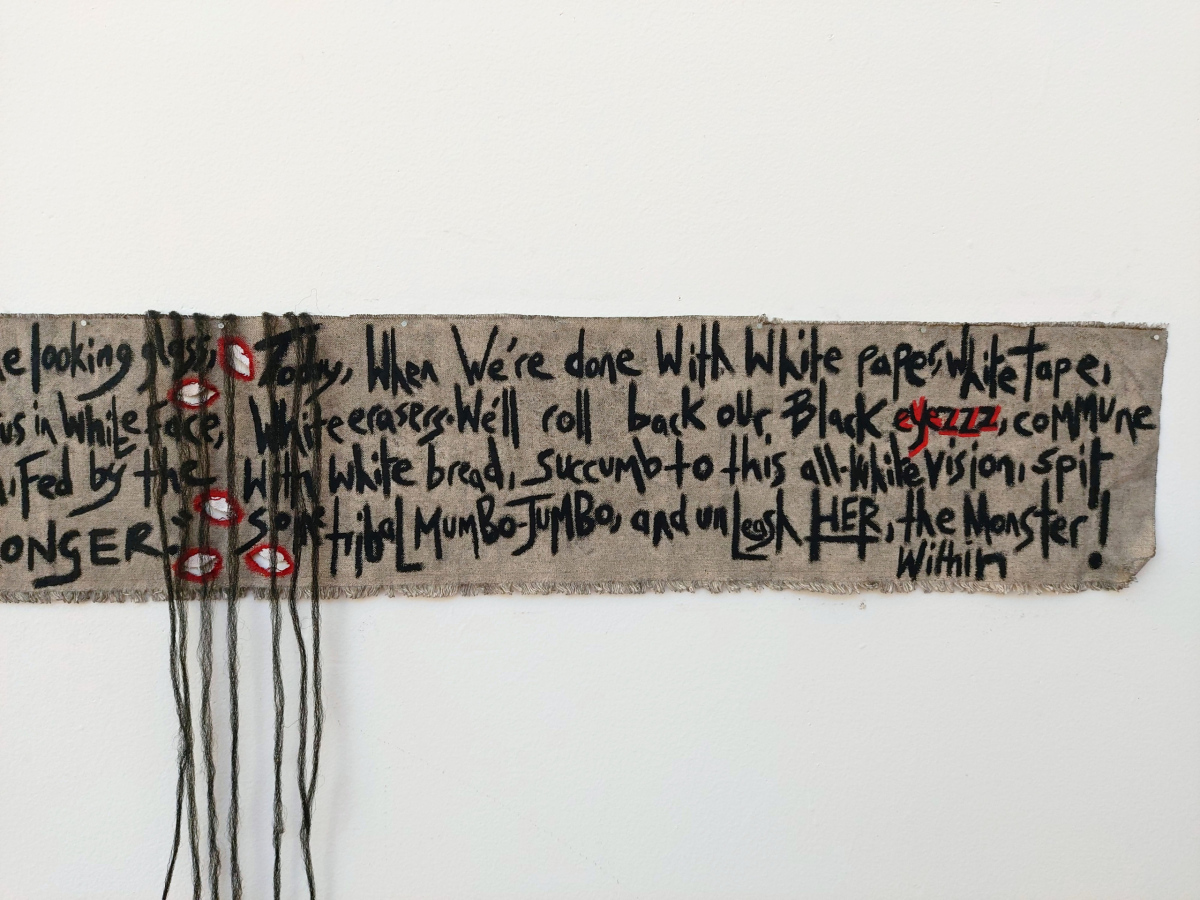 e looking glass,
us in White face,
, Fed by the
ONGER."
Today, When We're done With White paper, white tape,
White erasers. We'll roll back our Black eyezzz, commune
With white bread, succumb to this all-white vision, spit
some tribal MumBo-JumBo, and unLeash HER, the Monster!
Within